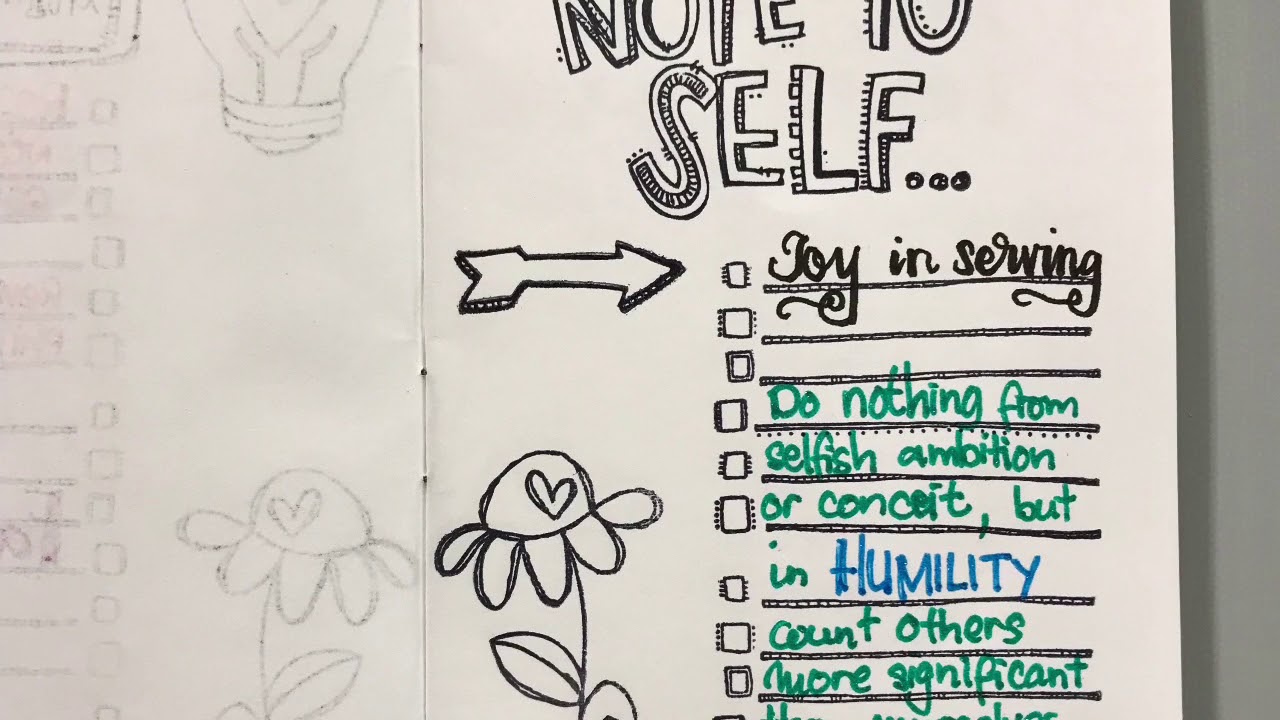 NOTE TO
SELF...
Joy in serving
Do nothing from
selfish ambition
or conceit, but
in HUMILITY
count others
more significant